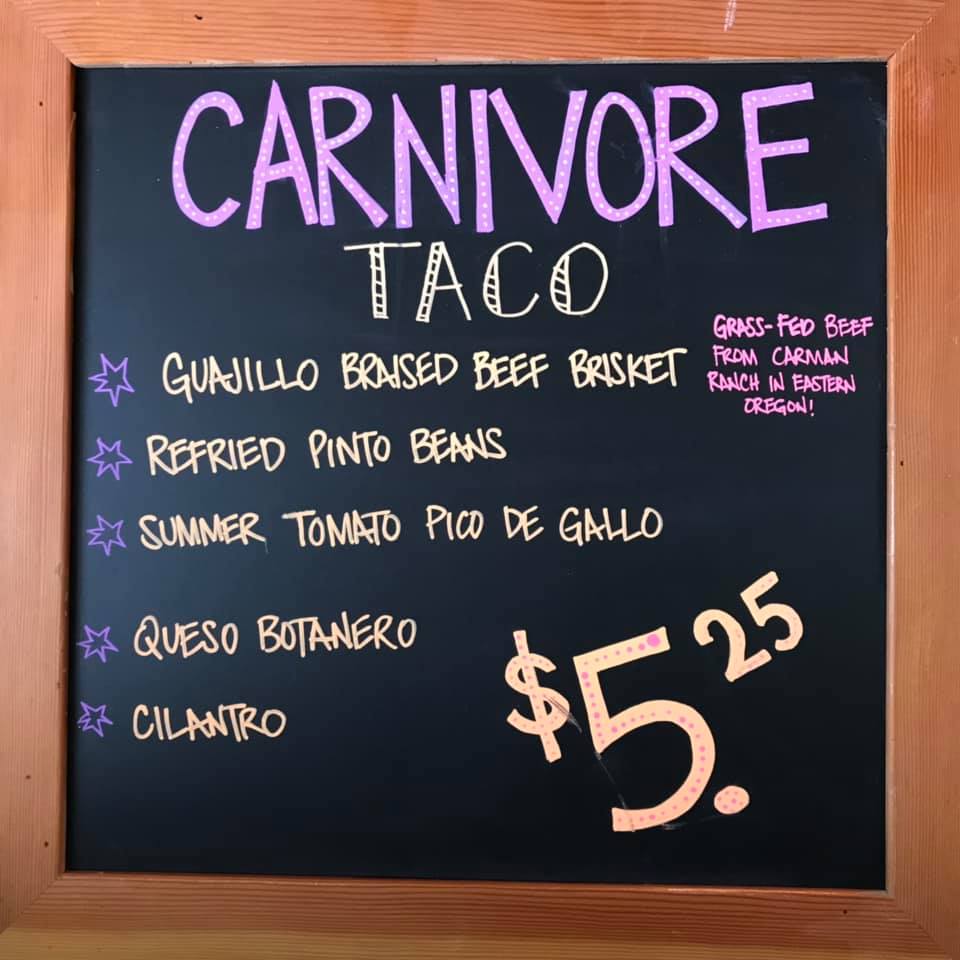 CARNIVORE
TACO
GUAJILLO BRAISED BEEF BRISKET
GRASS-FED BEEF
FROM CARMAN
RANCH IN EASTERN
OREGON!
REFRIED PINTO BEANS
SUMMER TOMATO PICO DE GALLO
QUESO BOTANERO
CILANTRO
$5.25